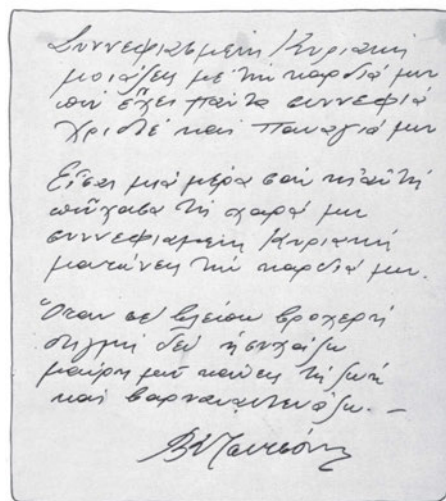 Συννεφιασμένη Κυριακή
μοιάζεις με την καρδιά μου
που έχει πάντα συννεφιά
Χριστέ και Παναγιά μου
Είσαι μιά μέρα σαν κι' αυτή
πούχασα τη χαρά μου
συννεφιασμένη Κυριακή
ματώνεις την καρδιά μου.
Όταν σε βλέπω βροχερή
στιγμή δεν ησυχάζω
μαύρη μού κάνεις τη ζωή
και βαρυαναστενάζω. —
Β Τσιτσάνης